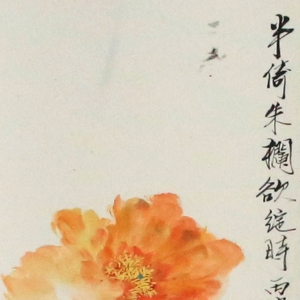 半倚朱欄欲綻時